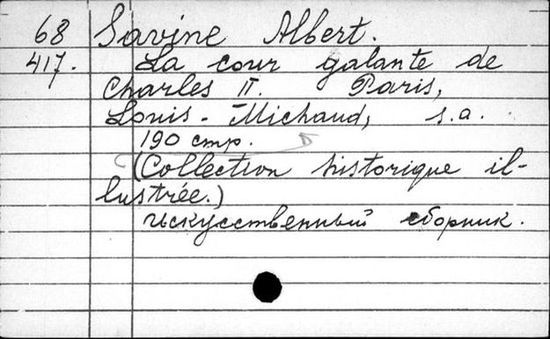 68 Savine Albert.
417. La cour galante de
Charles II. Paris,
Louis-Michaud, s.a.
190 стр.
(Collection historique il-
lustrée.)
искусственный сборник.